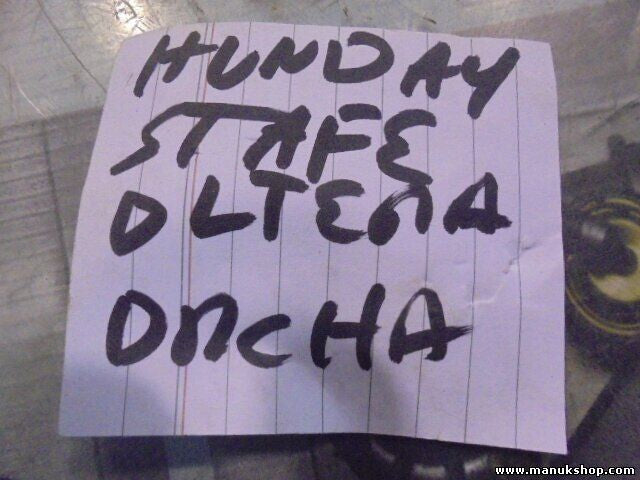 HUNDAY
STAFE
OLTERA
ORCHA
www.manukshop.com